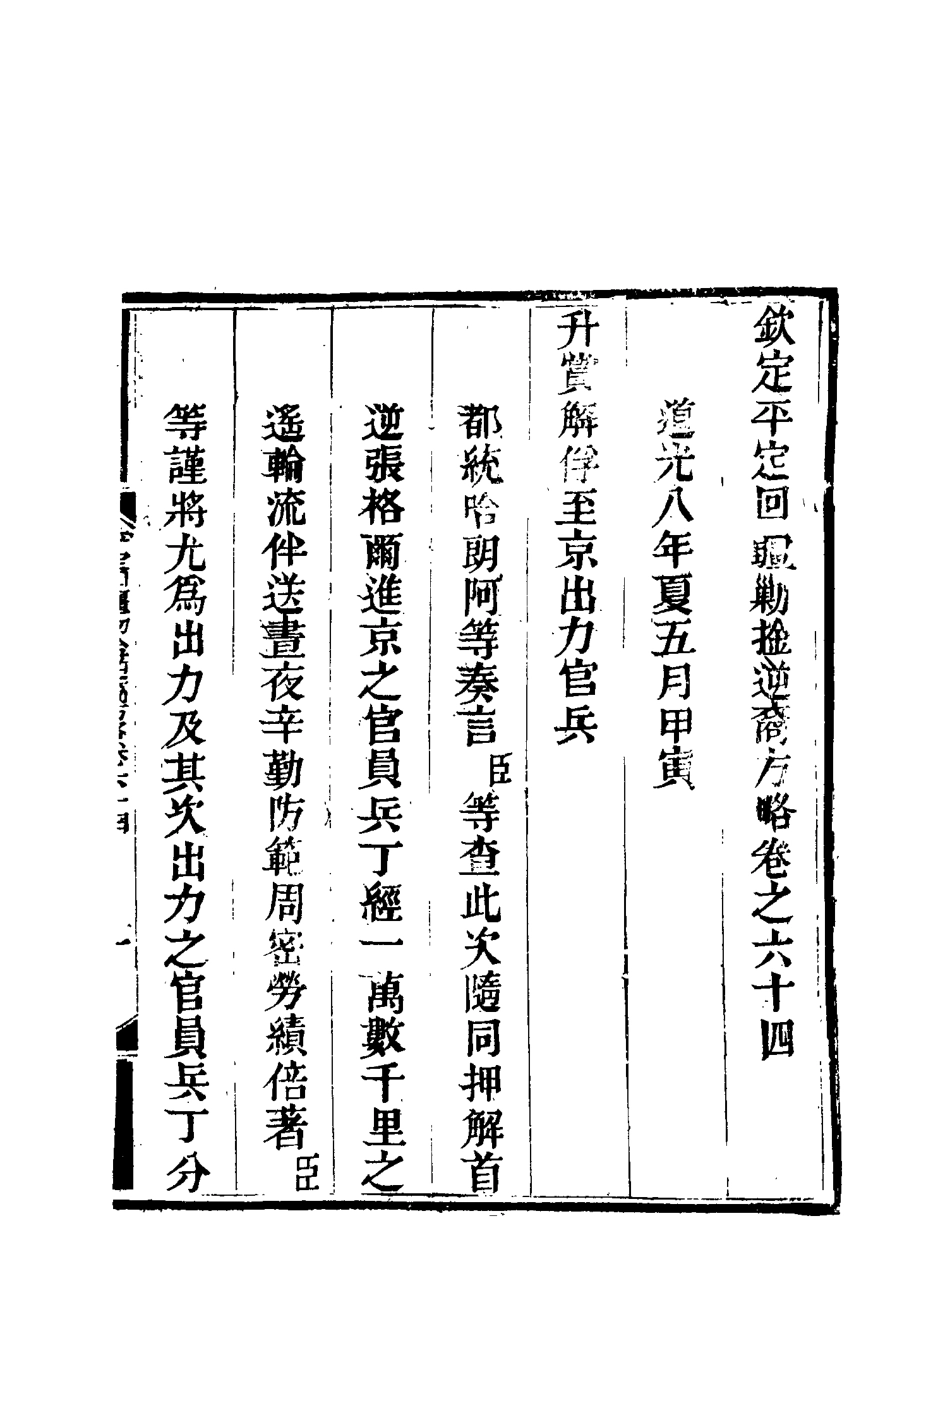 欽定平定回疆勦捦逆裔方略卷之六十四
道光八年夏五月甲寅
升賞解俘至京出力官兵
都統哈朗阿等奏言臣等查此次隨同押解首
逆張格爾進京之官員兵丁經一萬數千里之
遙輪流伴送晝夜辛勤防範周密勞績倍著臣
等謹將尤爲出力及其次出力之官員兵丁分